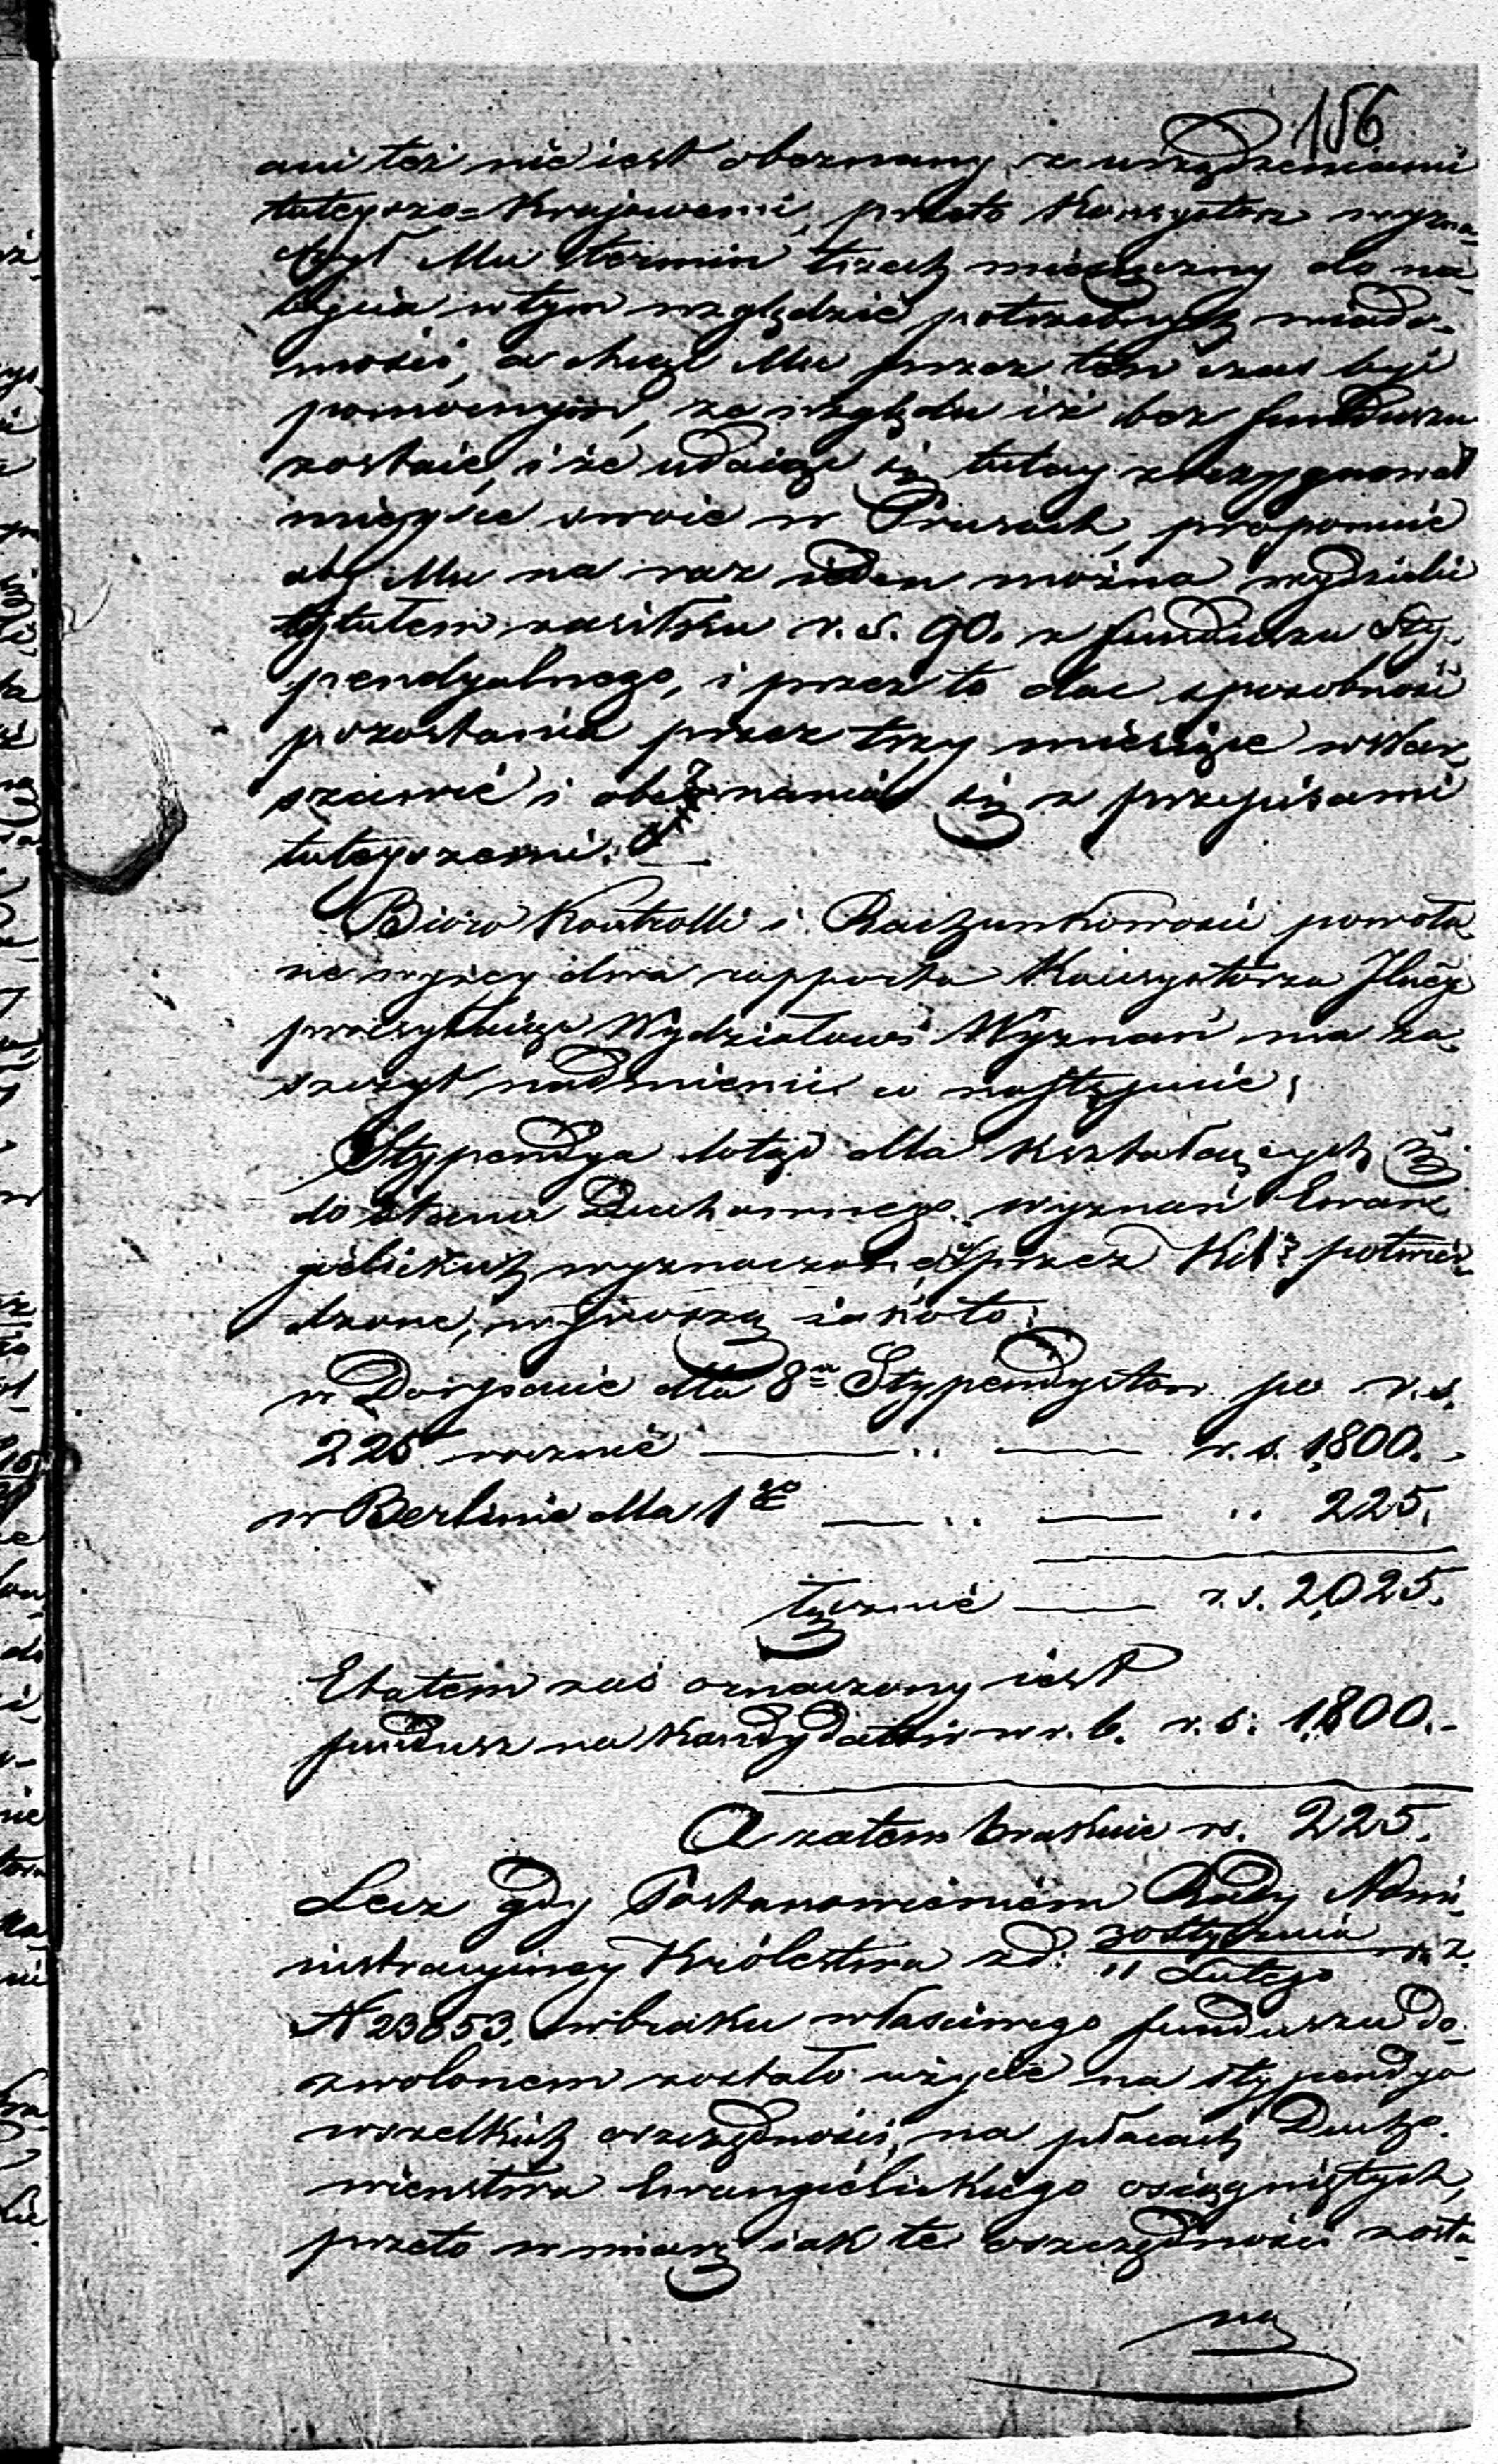 156
ani też nie iest obeznany z urządzeniami
tuteyszo=Krajowemi, przeto Konsystorz wyzna-
czył Mu termin trzech miesięczny do na-
bycia w tym względzie potrzebnych wiado-
mości, a chcąc Mu przez ten czas być
pomocnym, ze względu iż bez funduszu
zostaie, i że udaiąc się tutay zrezygnował
mieysce swoie w Prusach, proponuie
aby Mu na raz ieden można wydzielić
tytułem zasiłku r. s. 90. z funduszu Sty-
pendyalnego, i przez to dać sposobność
pozostania przez trzy miesiące w War-
szawie i obeznania się z przepisami
tuteyszemi.
Bióro Kontrolli i Rachunkowości powoła-
ne wyżey dwa rapporta Konsystorza
przesyłaiąc Wydziałowi Wyznań ma za-
szczyt nadmienić co następuie;
Stypendya dotąd dla Kształcących się
do Stanu Duchownego wyznań Ewan-
gelickich wyznaczone przez potwier-
dzone, wynoszą iakoto:
w Dorpacie dla 8u Stypendystów po r. s.
225 rocznie — .. — r. s. 1,800.
w Berlinie dla 1go — .. — .. 225.
łącznie — r. s. 2,025.
Etatem zaś oznaczony iest
fundusz na Kandydatów w r. b. r. s. 1,800.
A zatem brakuie rs. 225.
Lecz gdy Postanowieniem Rady Admi-
nistracyiney Królestwa z d: 30 Stycznia
11 Lutego
N 23853, w braku właściwego funduszu do-
zwolonem zostało użycie na stypendya
wszelkich oszczędności, na płacach Ducho-
wieństwa Ewangielickiego osiągniętych,
przeto w miarę iak te oszczędności zosta-
ną